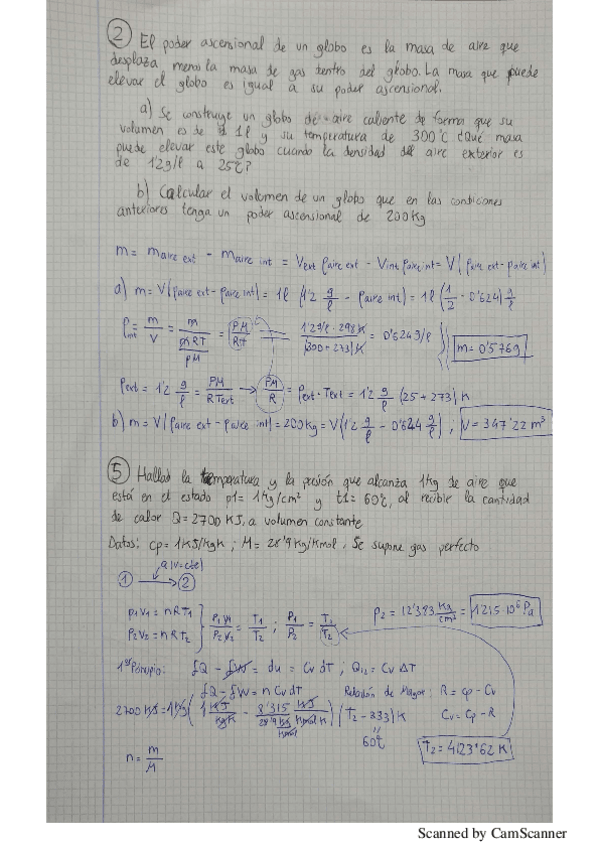 2 El poder ascensional de un globo es la masa de aire que
desplaza menos la masa de gas dentro del globo. La masa que puede
elevar el globo es igual a su poder ascensional.
a) Se construye un globo de aire caliente de forma que su
volumen es de 1l y su temperatura de 300°C ¿Qué masa
puede elevar este globo cuando la densidad del aire exterior es
de 1'2g/l a 25°C?
b) Calcular el volumen de un globo que en las condiciones
anteriores tenga un poder ascensional de 200Kg
m = maire ext - maire int = Vext ρaire ext - Vint ρaire int = V(ρaire ext - ρaire int)
a) m = V(ρaire ext - ρaire int) = 1l (1'2 g/l - ρaire int) = 1l (1/2 - 0'624) g/l
ρint = m/V = m/(nRT/PM) = PM/RT = 1'2g/l · 298K/(300+273)K = 0'624g/l
m = 0'576g
ρext = 1'2 g/l = PM/RText → PM/R = ρext · Text = 1'2 g/l (25+273) K
b) m = V(ρaire ext - ρaire int) = 200Kg = V(1'2 g/l - 0'624 g/l) ; V = 347'22 m³
5 Hallad la temperatura y la presión que alcanza 1Kg de aire que
está en el estado p1 = 1Kg/cm² y t1 = 60°C, al recibir la cantidad
de calor Q = 2700 KJ, a volumen constante
Datos: cp = 1KJ/KgK ; M = 28'9 Kg/Kmol. Se supone gas perfecto
Q(V=cte)
1 → 2
P1V1 = nRT1
P2V2 = nRT2
P1V1/P2V2 = T1/T2 ; P1/P2 = T1/T2
P2 = 12'383 Kg/cm² = 1'215·10⁶ Pa
1er Principio: δQ - δW = du = Cv dT ; Q12 = Cv ΔT
δQ - δW = n Cv dT
Relación de Mayer: R = Cp - Cv
2700 KJ = 1Kg (1 KJ/KgK - 8'315/28'9 KJ/KmolK Kg/Kmol) (T2 - 333) K
Cv = Cp - R
60°C
T2 = 4123'62 K
n = m/M
Scanned by CamScanner